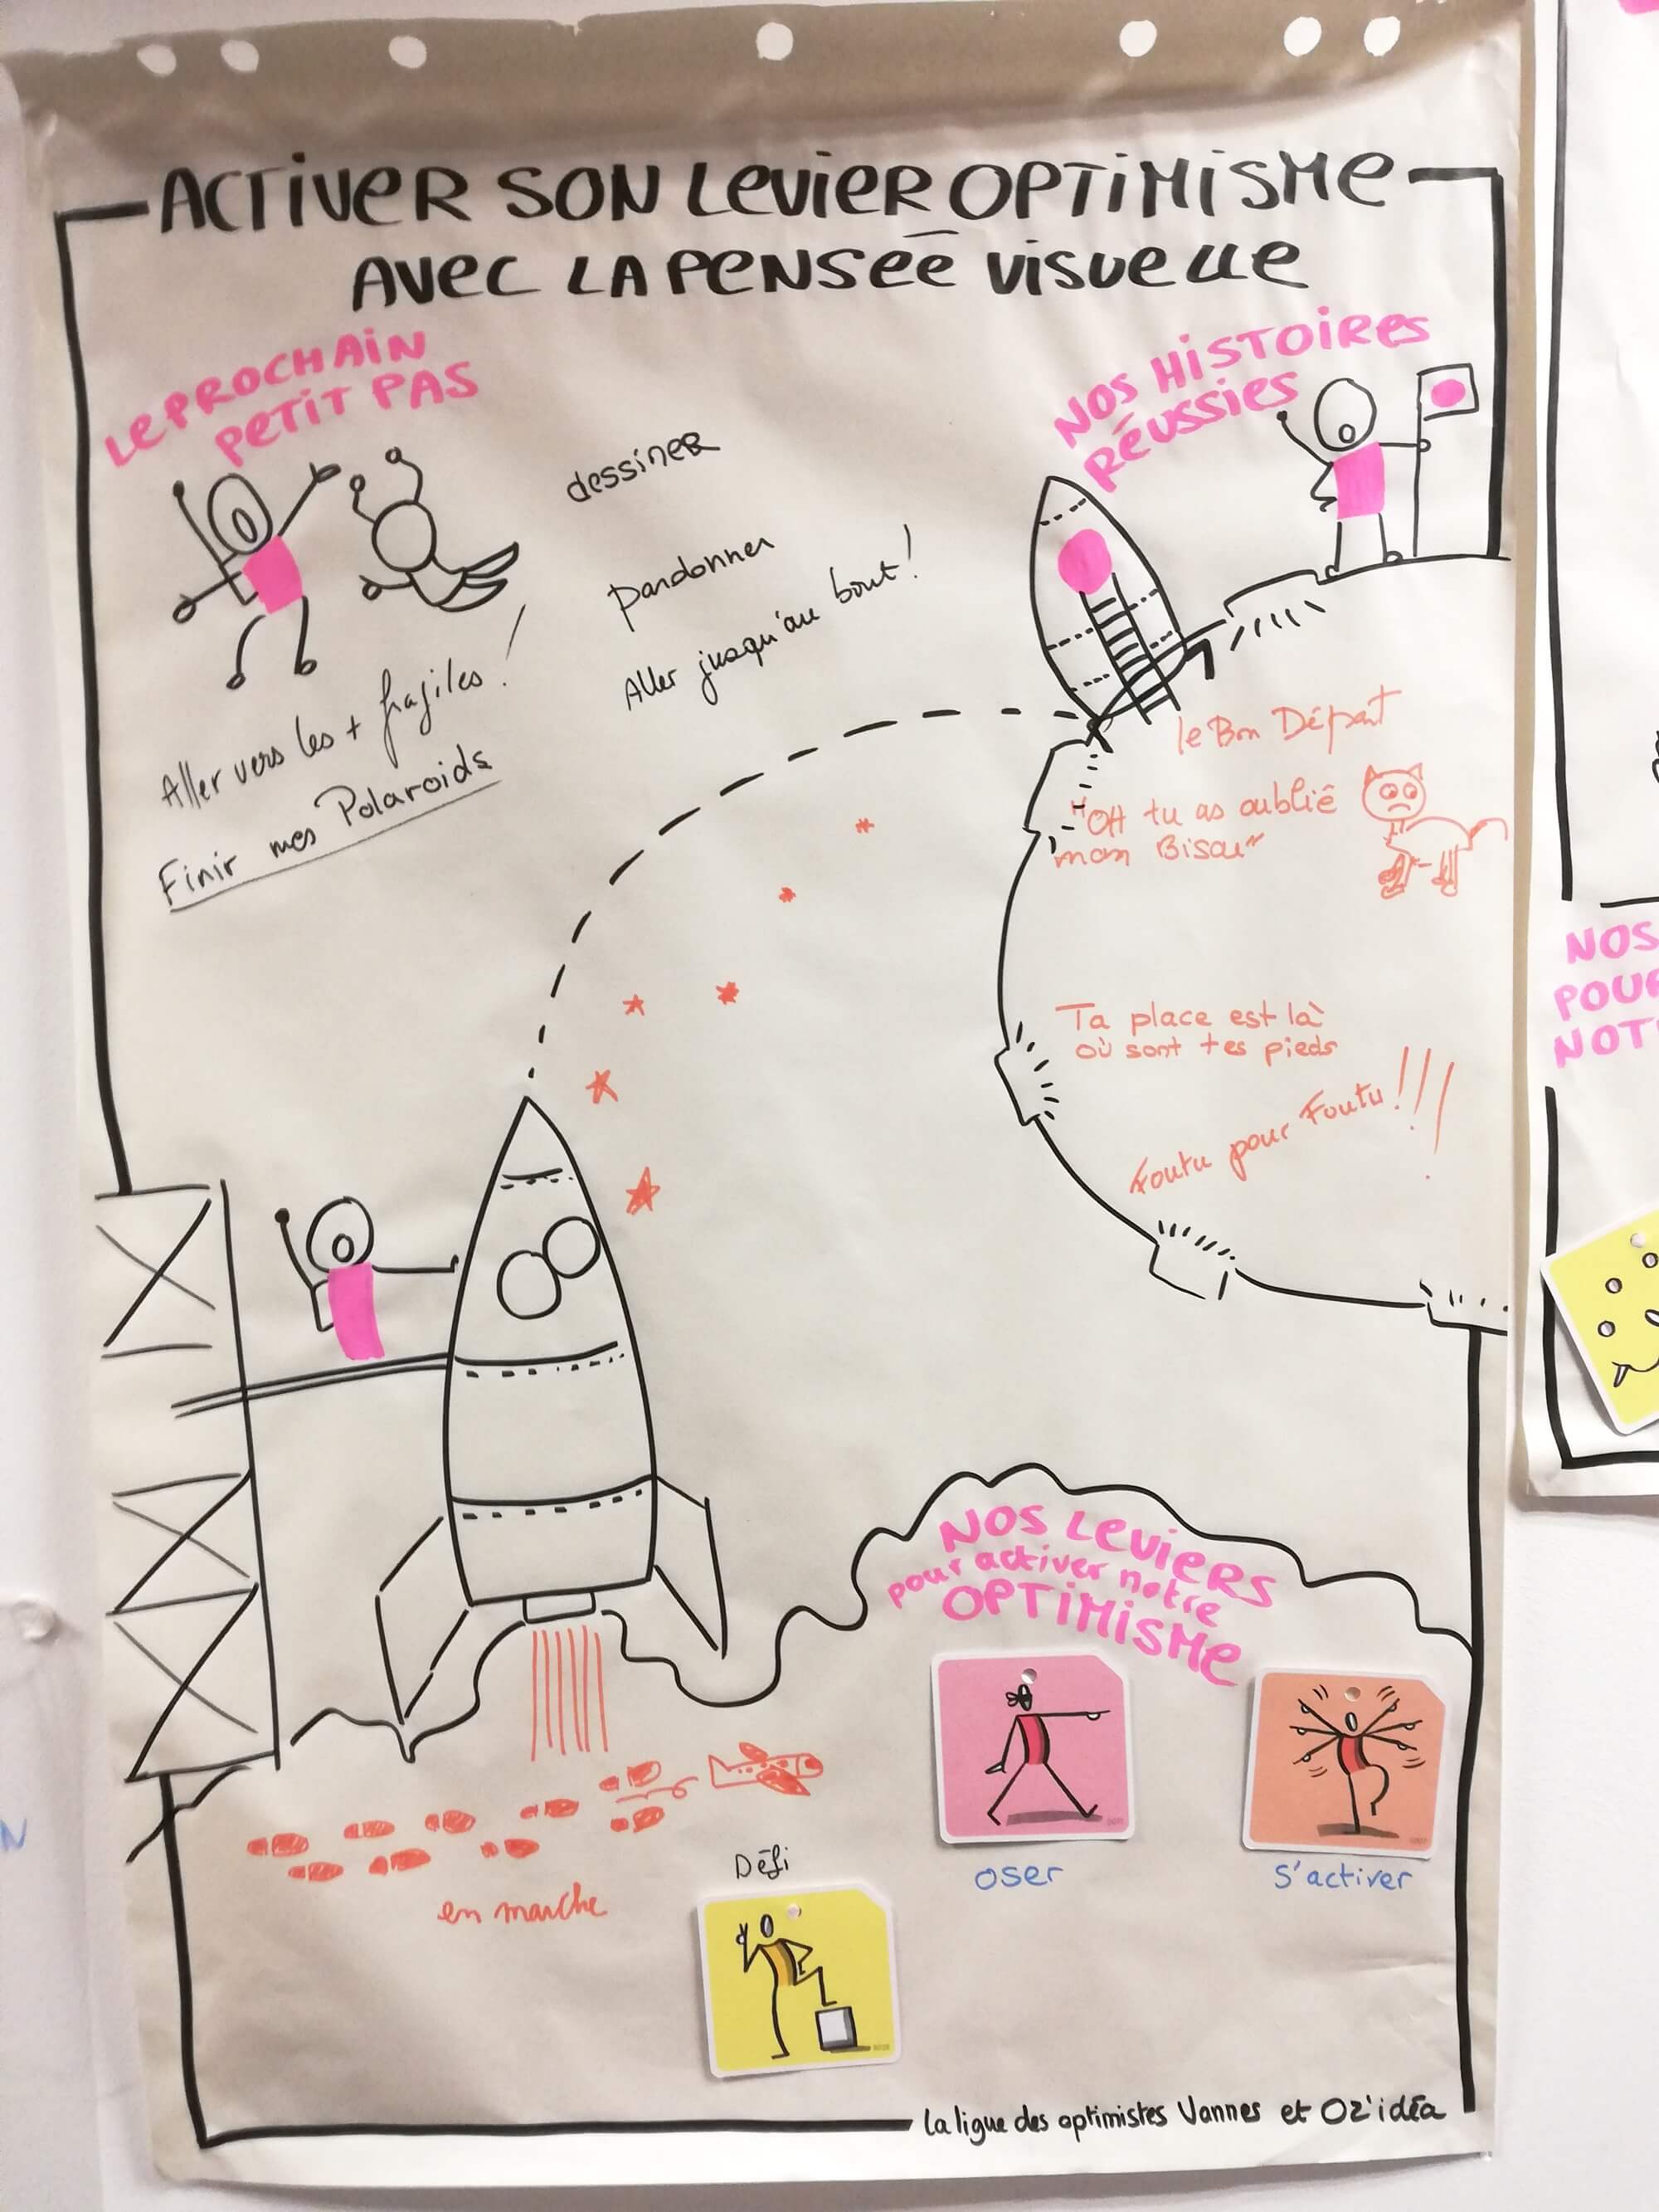 ACTIVER SON LEVIER OPTIMISME
AVEC LA PENSÉE VISUELLE
LE PROCHAIN
PETIT PAS
dessiner
pardonner
Aller jusqu'au bout !
Aller vers les + fragiles !
Finir mes Polaroids
NOS HISTOIRES
RÉUSSIES
le Bon Départ
"OH tu as oublié
mon Bisou"
Ta place est là
où sont tes pieds
Foutu pour Foutu !!!
NOS LEVIERS
pour activer notre
OPTIMISME
oser
S'activer
Défi
en marche
La ligue des optimistes Vannes et Oz'idéa
NOS
POUR
NOT
N